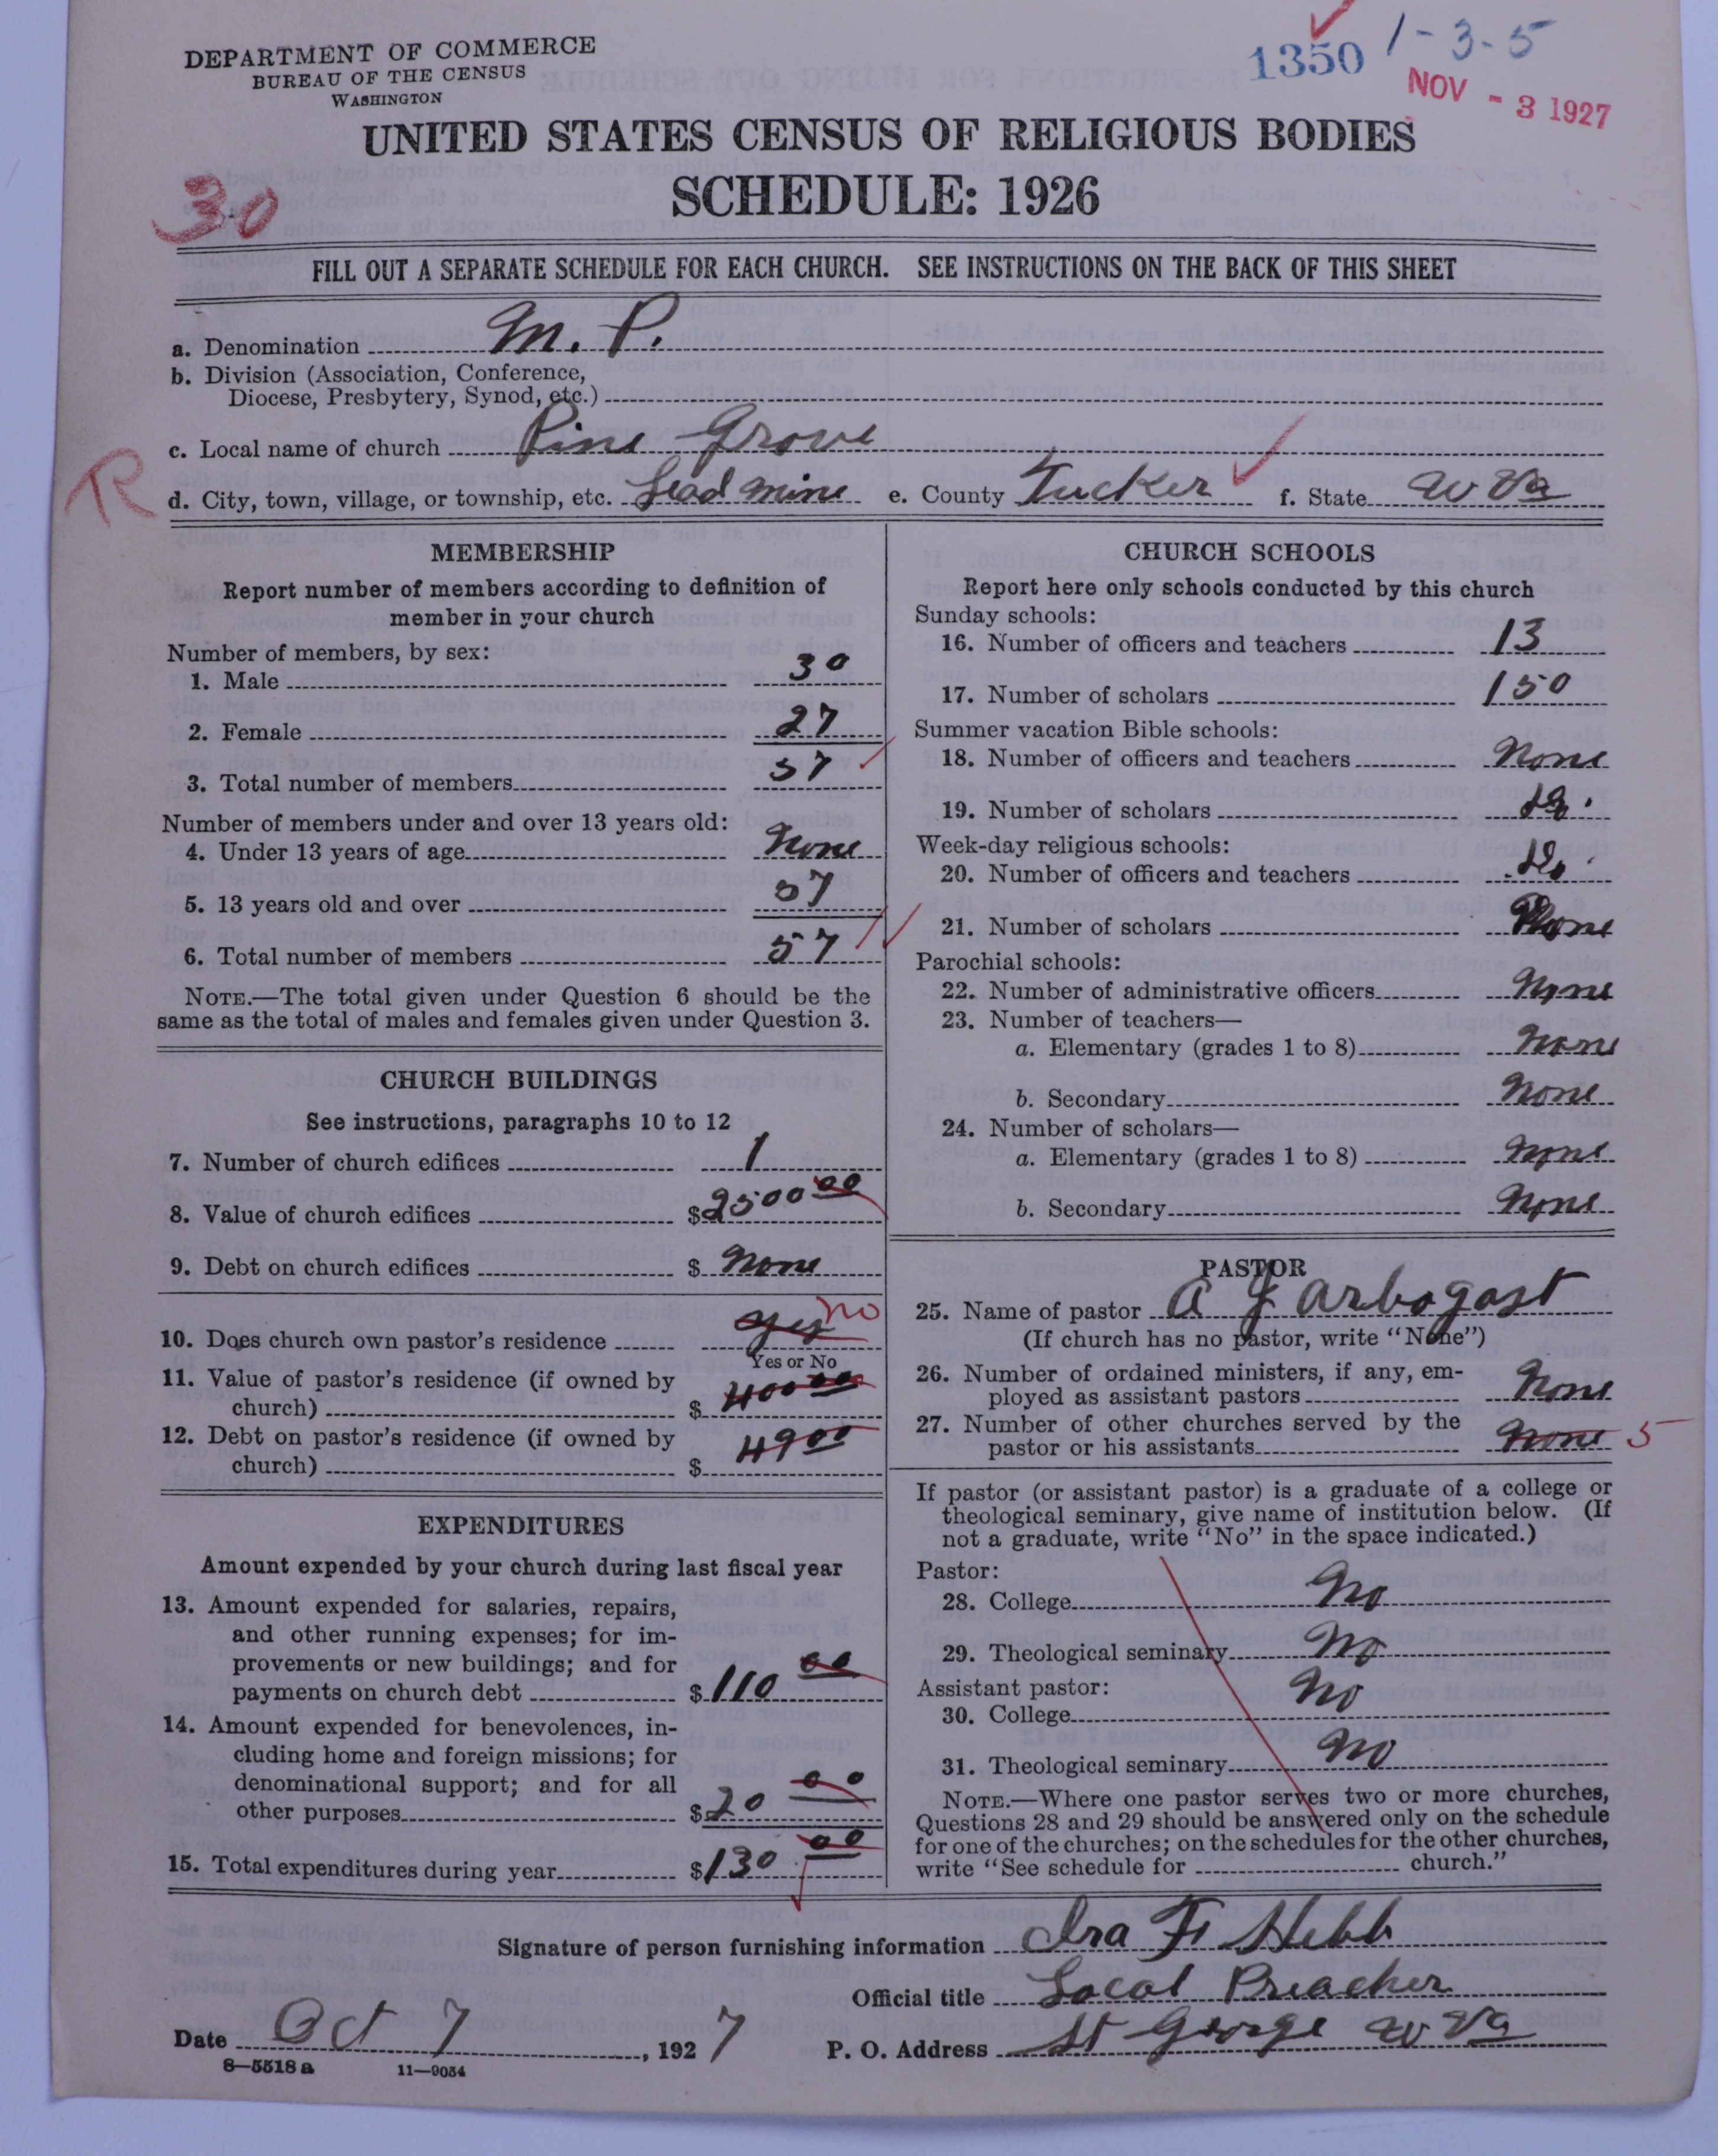 DEPARTMENT OF COMMERCE
BUREAU OF THE CENSUS
WASHINGTON
1350 1-3-5
NOV - 3 1927
UNITED STATES CENSUS OF RELIGIOUS BODIES
SCHEDULE: 1926
30
FILL OUT A SEPARATE SCHEDULE FOR EACH CHURCH. SEE INSTRUCTIONS ON THE BACK OF THIS SHEET
a. Denomination M. P.
b. Division (Association, Conference,
Diocese, Presbytery, Synod, etc.)
c. Local name of church Pine Grove
R
d. City, town, village, or township, etc. Lead mine e. County Tucker f. State W Va
MEMBERSHIP
Report number of members according to definition of
member in your church
Number of members, by sex:
1. Male 30
2. Female 27
3. Total number of members 57
Number of members under and over 13 years old:
4. Under 13 years of age None
5. 13 years old and over 57
6. Total number of members 57
NOTE.—The total given under Question 6 should be the
same as the total of males and females given under Question 3.
CHURCH BUILDINGS
See instructions, paragraphs 10 to 12
7. Number of church edifices 1
8. Value of church edifices $2500 00
9. Debt on church edifices $ None
10. Does church own pastor's residence yes no
Yes or No
11. Value of pastor's residence (if owned by
church) $ 400 00
12. Debt on pastor's residence (if owned by
church) $ 49 00
EXPENDITURES
Amount expended by your church during last fiscal year
13. Amount expended for salaries, repairs,
and other running expenses; for im-
provements or new buildings; and for
payments on church debt $110 00
14. Amount expended for benevolences, in-
cluding home and foreign missions; for
denominational support; and for all
other purposes $20 00
15. Total expenditures during year $130 00
CHURCH SCHOOLS
Report here only schools conducted by this church
Sunday schools:
16. Number of officers and teachers 13
17. Number of scholars 150
Summer vacation Bible schools:
18. Number of officers and teachers None
19. Number of scholars
Week-day religious schools:
20. Number of officers and teachers
21. Number of scholars None
Parochial schools:
22. Number of administrative officers None
23. Number of teachers—
a. Elementary (grades 1 to 8) None
b. Secondary None
24. Number of scholars—
a. Elementary (grades 1 to 8) None
b. Secondary None
PASTOR
25. Name of pastor A J Arbogast
(If church has no pastor, write "None")
26. Number of ordained ministers, if any, em-
ployed as assistant pastors None
27. Number of other churches served by the
pastor or his assistants None 5
If pastor (or assistant pastor) is a graduate of a college or
theological seminary, give name of institution below. (If
not a graduate, write "No" in the space indicated.)
Pastor:
28. College No
29. Theological seminary No
Assistant pastor:
30. College No
31. Theological seminary No
NOTE.—Where one pastor serves two or more churches,
Questions 28 and 29 should be answered only on the schedule
for one of the churches; on the schedules for the other churches,
write "See schedule for church."
Signature of person furnishing information Ira F Hebb
Official title Local Preacher
Date Oct 7, 1927 P. O. Address St George W Va
8—5518 a 11—9054